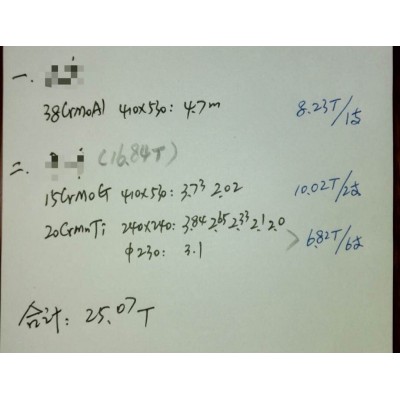 一.
38CrMoAl 410x530: 4.7m 8.23T/1支
二. (16.84T)
15CrMoG 410x530: 3.73 2.02 10.02T/2支
20CrMnTi 240x240: 3.84 2.65 2.33 2.1 2.0
φ230: 3.1 6.82T/6支
合计: 25.07T